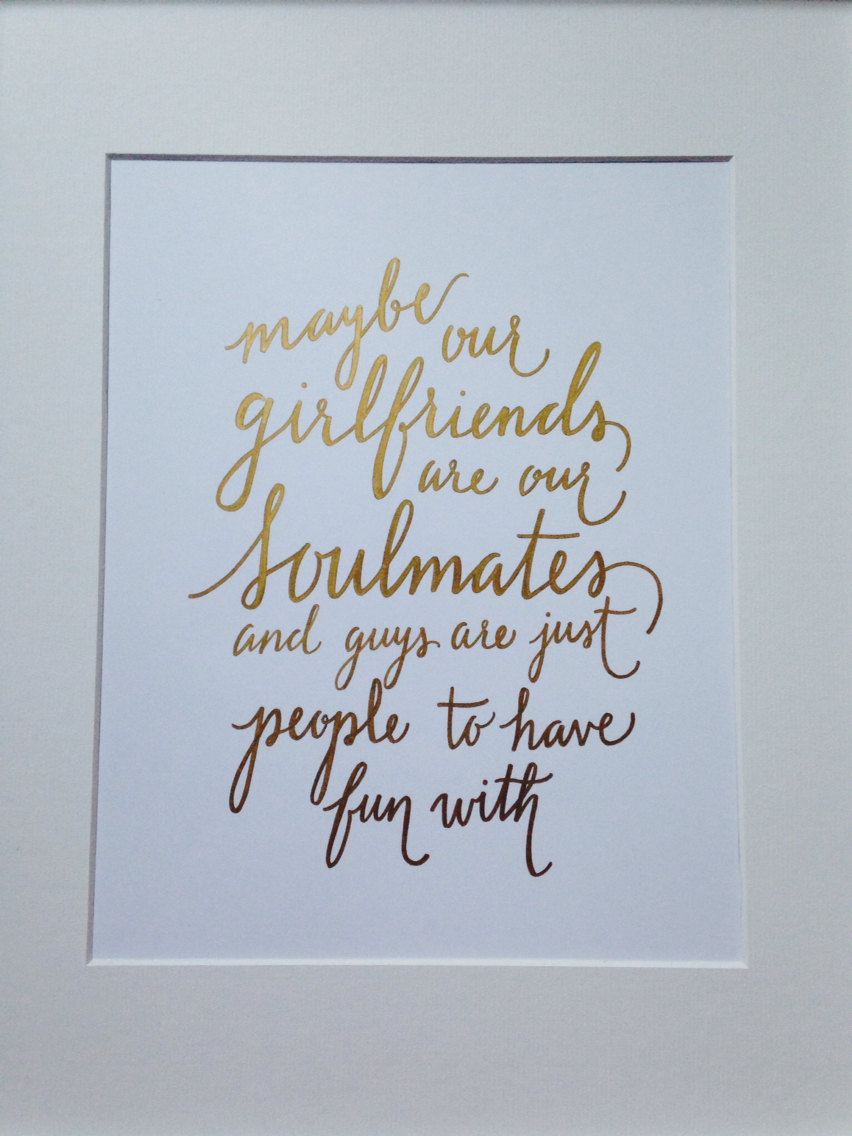 maybe our
girlfriends
are our
soulmates
and guys are just
people to have
fun with